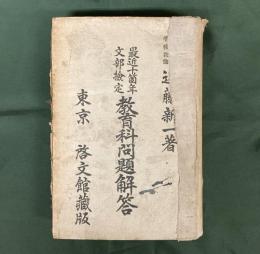 新一著
最近十箇年
文部検定
教育科問題解答
東京 啓文館蔵版